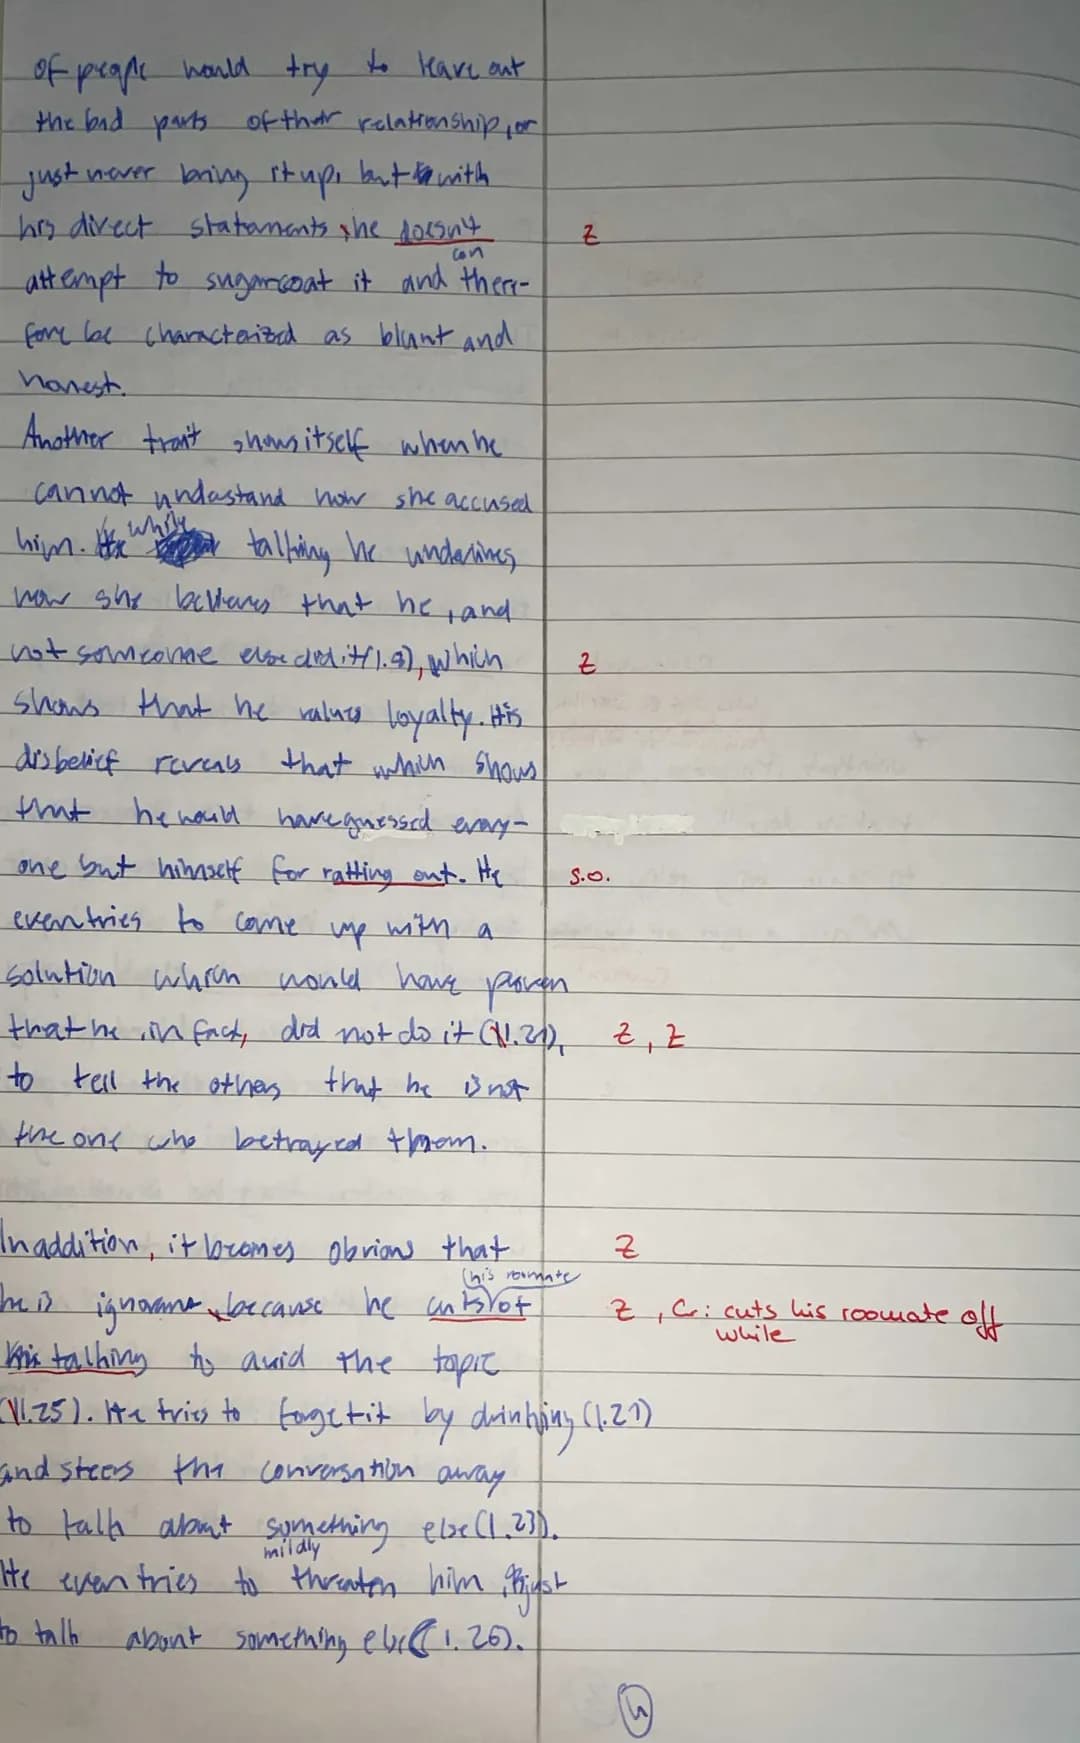 of people would try to leave out
the bad parts of their relationship, or
just never bring it up, but with
his direct statements, he doesn't Z
can
attempt to sugarcoat it and there-
fore be characterized as blunt and
honest.
Another trait shows itself when he
cannot understand how she accused
while
him. talking he underlines
how she believes that he, and
not someone else did it (l.9), which Z
shows that he values loyalty. His
disbelief reveals that which shows
that he would have guessed every-
one but himself for ratting out. He s.o.
even tries to come up with a
solution which would have proven
that he, in fact, did not do it (l.21), Z, Z
to tell the others that he is not
the one who betrayed them.
In addition, it becomes obvious that Z
(his roomate
he is ignorant, because he cuts of Z, Gr: cuts his roomate off
while
talking to avid the topic
(l.25). He tries to forget it by drinking (l.27)
and steers the conversation away
to talk about something else (l.23).
mildly
He even tries to threaten him, just
to talk about something else (l.26).
4